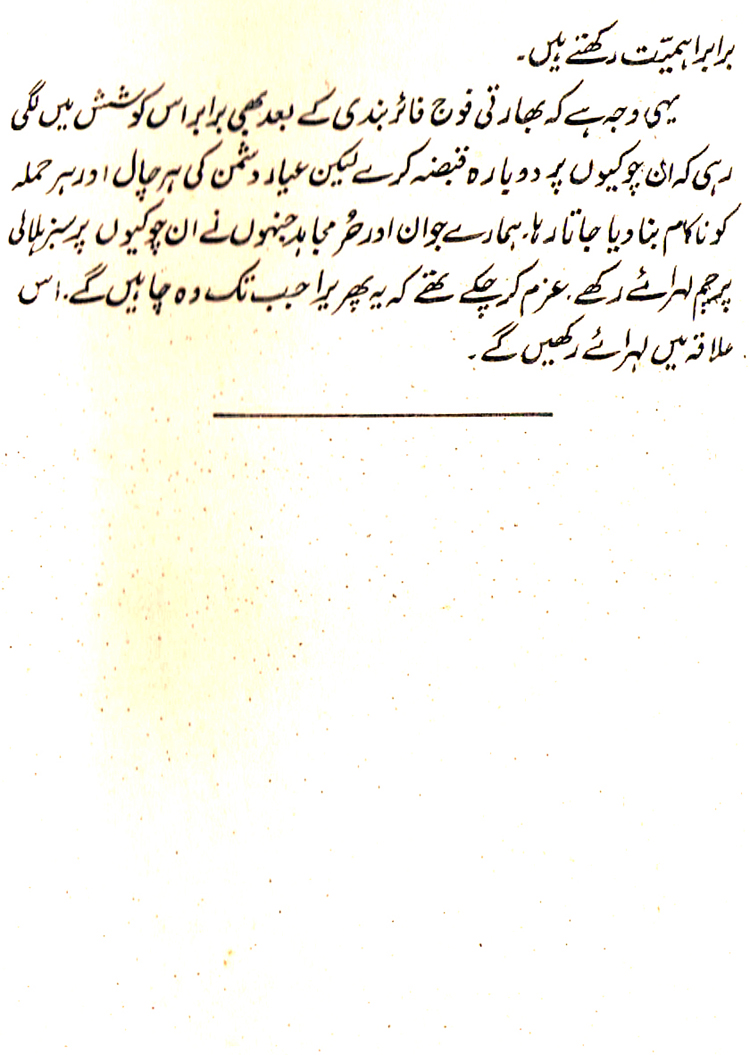 برابر اہمیّت رکھتے ہیں۔
یہی وجہ ہے کہ بھارتی فوج فائر بندی کے بعد بھی برابر اس کوشش میں لگی
رہی کہ ان چوکیوں پر دوبارہ قبضہ کرے لیکن عیار دشمن کی ہر چال اور ہر حملہ
کو ناکام بنا دیا جاتا رہا۔ ہمارے جوان اور حُر مجاہد جنہوں نے ان چوکیوں پر سبز ہلالی
پرچم لہرائے رکھے۔ عزم کر چکے تھے کہ یہ پھریرا جب تک وہ چاہیں گے۔ اس
علاقہ میں لہرائے رکھیں گے۔